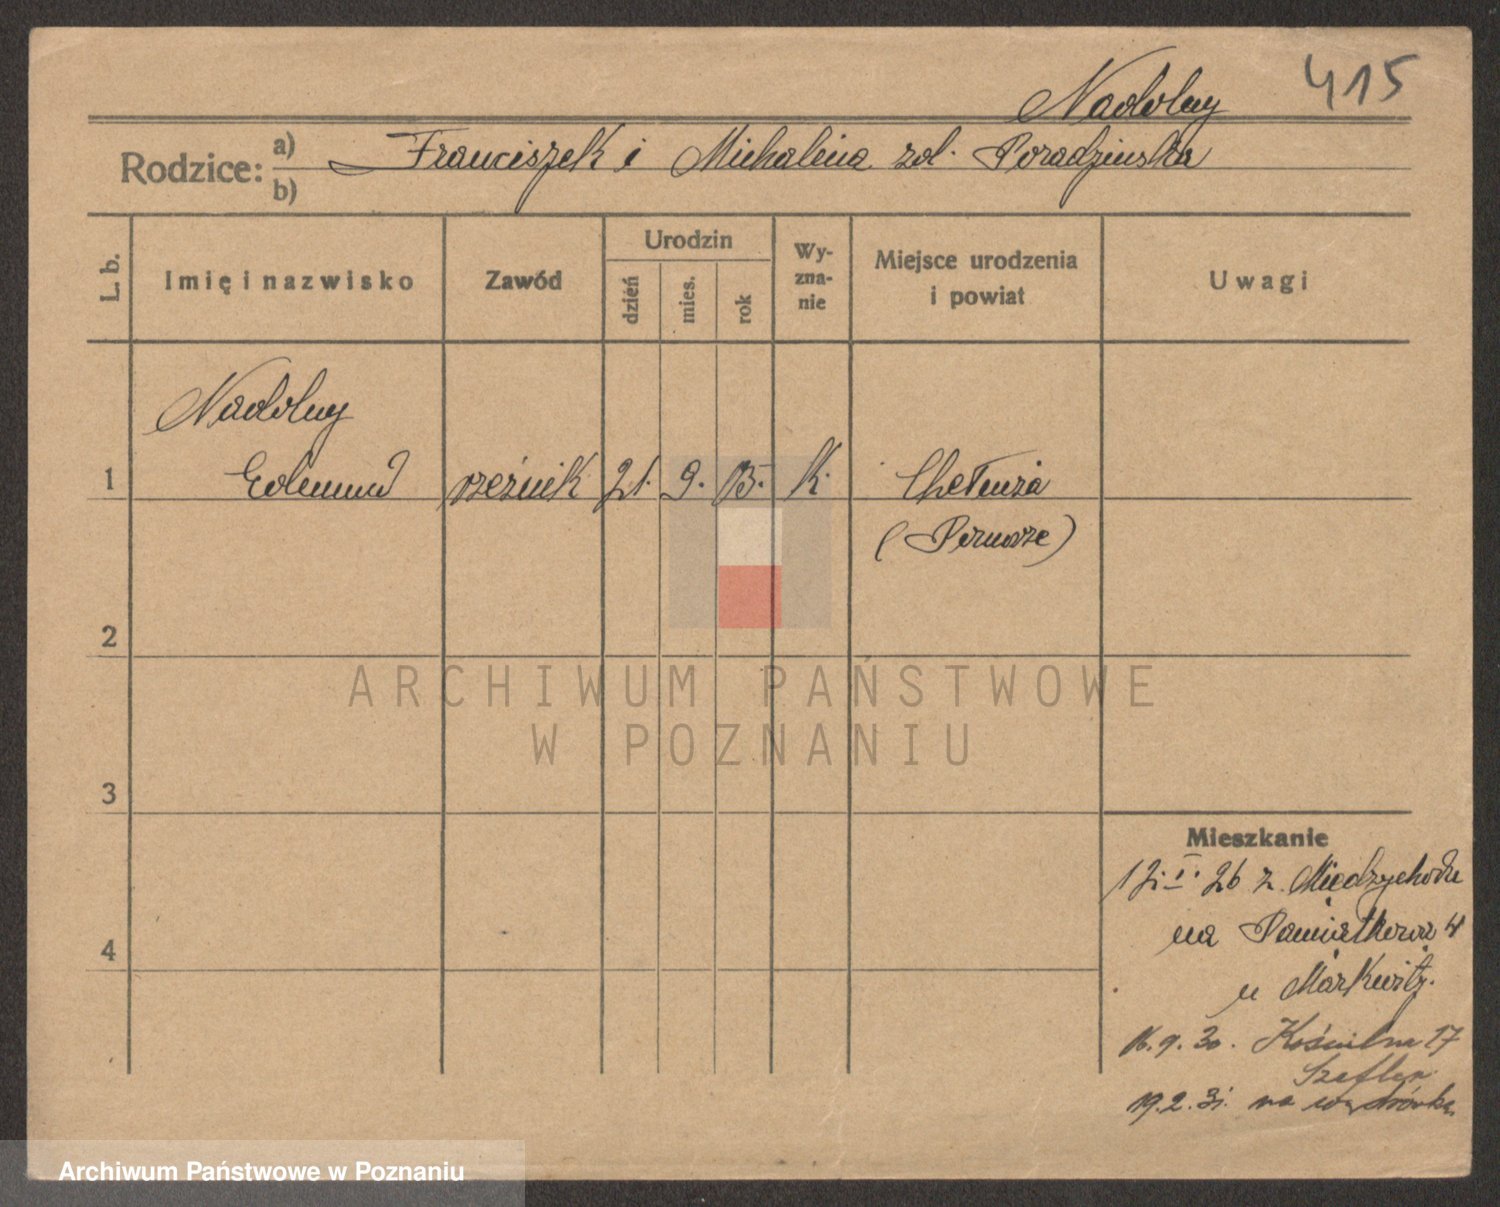 415
Nadolny
Rodzice: a) Franciszek i Michalina zd. Poradzińska
b)
L. b. Imię i nazwisko Zawód Urodzin dzień mies. rok Wyznanie Miejsce urodzenia i powiat Uwagi
Nadolny
1 Edmund rzeźnik 21. 9. 03. k. Chełmża
(Pomorze)
2
3
4
Mieszkanie
12. I. 26 z Międzychodu
na Pamiątkowa 4
u Markwitz.
16.9.30. Kościelna 17
Szafler
19.2.31. na wędrówkę.
ARCHIWUM PAŃSTWOWE
W POZNANIU
Archiwum Państwowe w Poznaniu